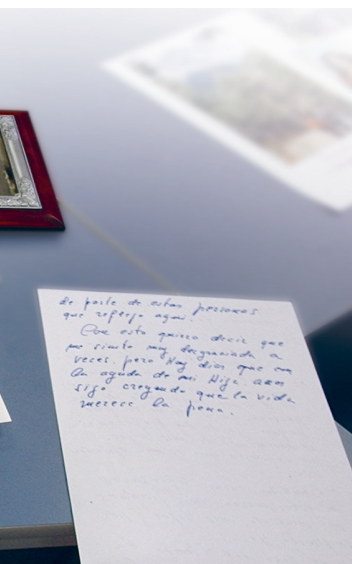 de parte de estas personas
que reflejo aqui.
Con esto quiero decir que
me siento muy desgraciada a
veces, pero Hay dias que con
la ayuda de mi Hija, aun
sigo creyendo que la vida
merece la pena.